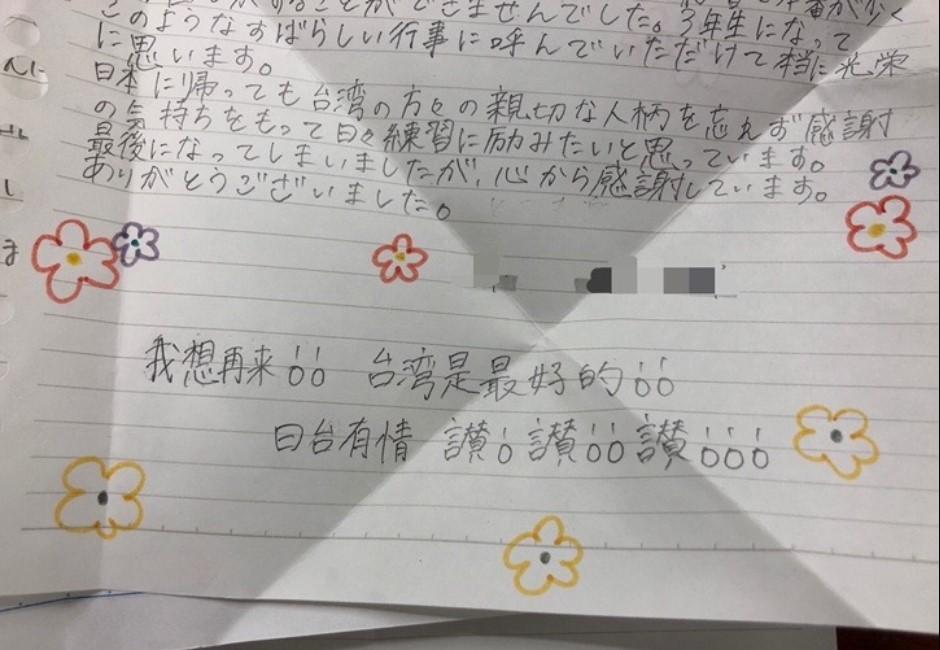 することができませんでした。3年生になって
このようなすばらしい行事に呼んでいただけて本当に光栄
に思います。
日本に帰っても台湾の方々の親切な人柄を忘れず感謝
の気持ちをもって日々練習に励みたいと思っています。
最後になってしまいましたが、心から感謝しています。
ありがとうございました。
我想再来!! 台湾是最好的!!
日台有情 讃! 讃!! 讃!!!
んに
し
ま